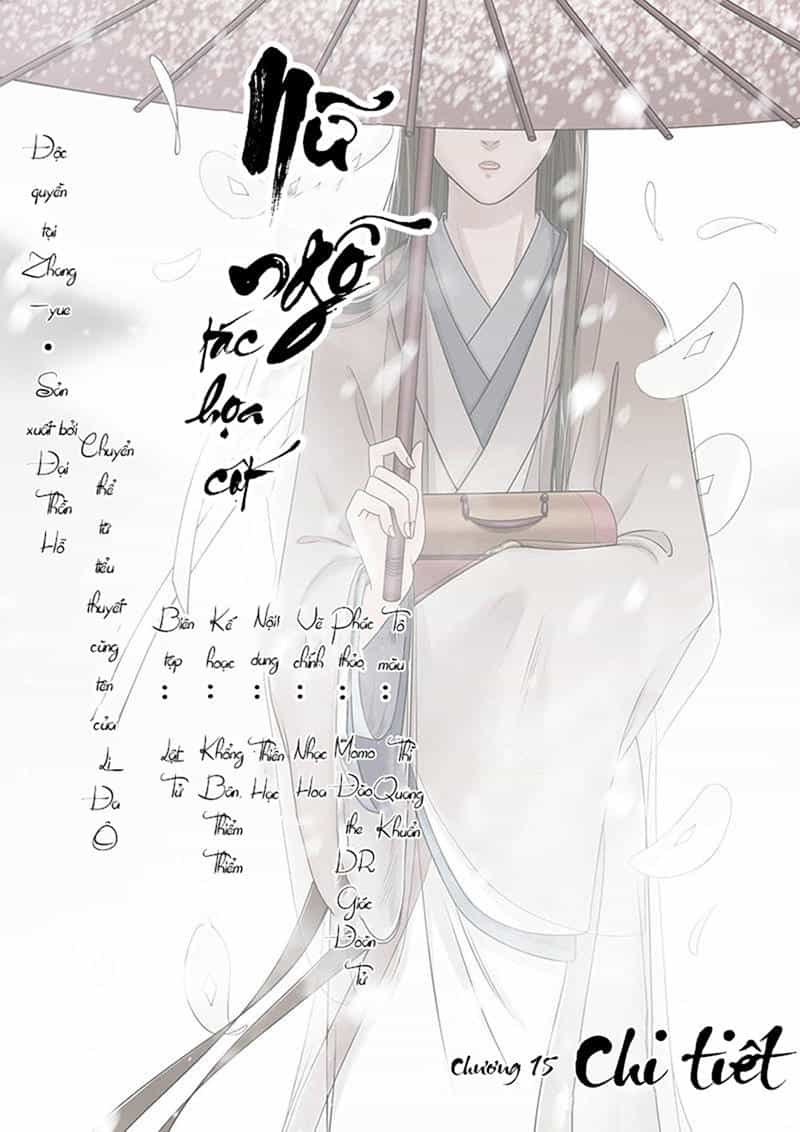 Nữ
ngỗ
tác
họa
cốt
Độc
quyền
tại
Zhang
-yue
•
Sản
xuất bởi
Đại
Thần
Hỗ
Chuyển
thể
từ
tiểu
thuyết
cùng
tên
của
Li
Đa
Ô
Biên
tập
:
Lật
Tử
Kế
hoạc
:
Khổng
Bân,
Thiểm
Thiểm
Nội
dung
:
Thiên
Hạc
Vẽ
chính
:
Nhạc
Hoa
Phác
thảo
:
Momo
Đào
the
DR
Giác
Đoàn
Tử
Tô
màu
:
Thi
Quang
Khuẩn
Chương 15
Chi tiết